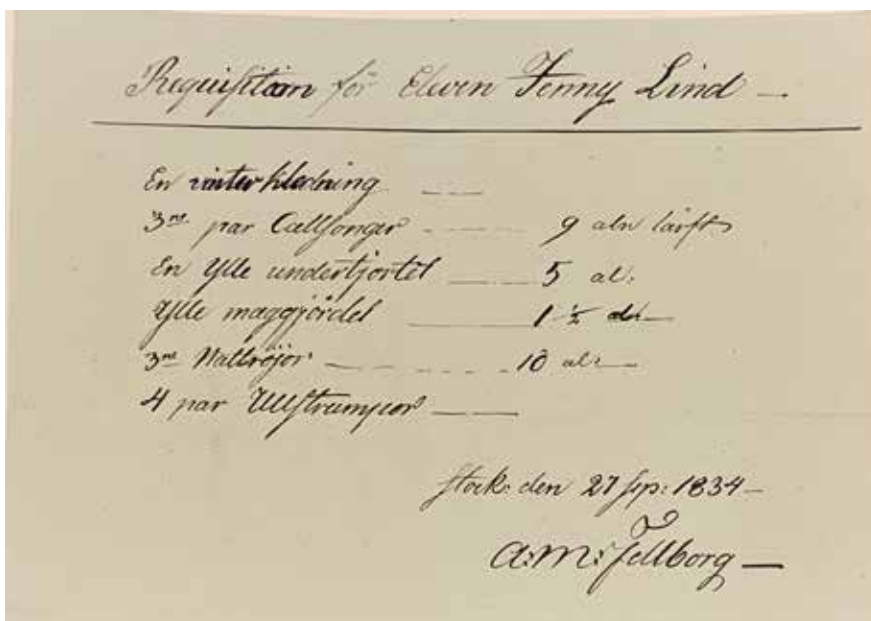 Requisition för Elwen Jenny Lind —
En vinterklädning
3ne par Callsonger 9 aln lärft
En Ylle undertjortel 5 al:
Ylle maggjördel 1 ½ aln
3ne Nattröjor 10 al:
4 par Ullstrumpor
Stock: den 27 Sep: 1834 —
A: M: Fellborg —